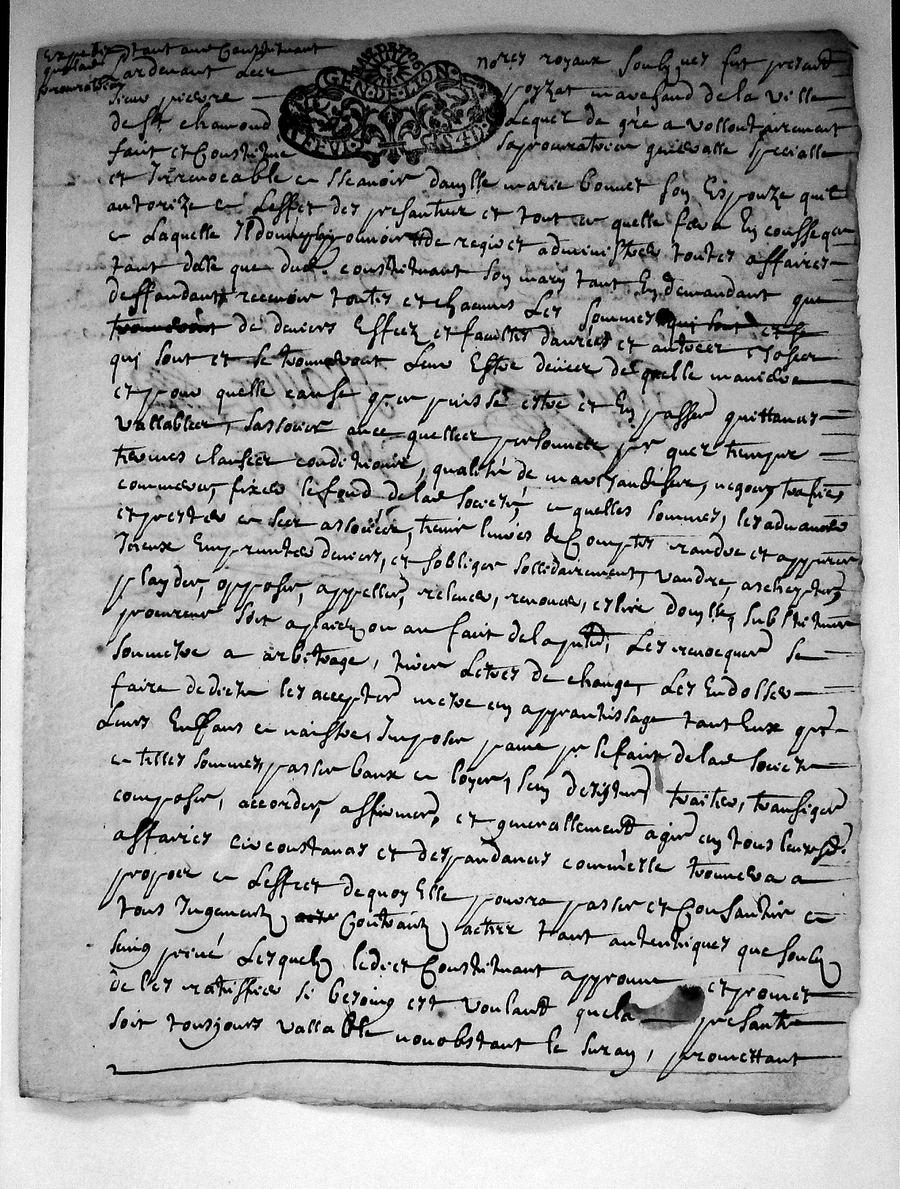 expedié
procuration
Pardevant Les notres royaux soubz nés fut presant
sieur pierre poyzat marchand de la ville
GEN DE LION
de st chamond Lequel de gré a vollontairement
fait et Constitue sa procuratrice generalle specialle
et Irrevocable a scavoir damlle marie bonnet son Espouze quil
authorize a Leffet des presantes et tout ce quelle fera En conseque
a Laquelle Il donne pouvoir de regir et administrer toutes affaires
tant delle que dud. constituant son mary tant En demandant que
deffandant recevoir toutes et chacunes Les sommes
de deniers Effectz et facultes danrées et autres choses
qui sont et se trouveront Leur Estre deües de quelle maniere
et pour quelle cause que puisse estre et En passer quittances
vallables, sassocier avec quelles personnes pr quel temps
termes clauses conditions, qualité de marchandises, negoces, trafics,
commerces, fixer le fond de lad societé, a quelles sommes, les advancer
et prester a ses associés, tenir livres de Comptes randre et appurer
Iceux Emprunter deniers, et sobliger sollidairement, vandre, achepter,
playder, opposer, appeller, relever, renoncer, eslire domlle, substituer
procureurs soit a plaid ou au fait de la pnte, Les revocquer se
soumetre a arbitrage, tirer Letres de change, Les Endosser
faire de dictes les accepter metre en apprantissage tant Eux que
Leurs Enffans a naistre, Imposer paine pr le fait de lad societé
a telles sommes, passer baux a loyer, sen desister, traiter, transiger
composer, accorder, affirmer, et generallement agir en tous leursd.
affaires circonstances et despandances comm'elle trouvera a
propos a Leffect de quoy Elle pourra passer et Consantir a
tous Jugements Contracts actes tant autentiques que soubz
seing privé Lesquelz ledict Constituant approuve et promet
de les ratiffier si besoing est voulant que la presante
soit tousjours vallable nonobstant le suran, promettant